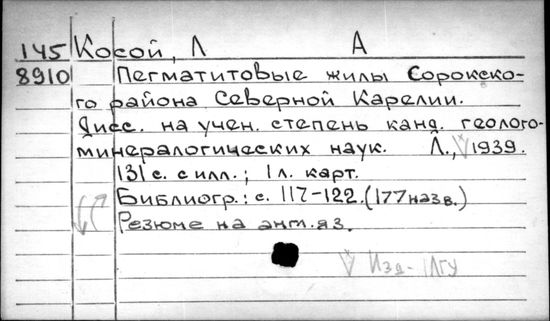 145 Косой, Л А
8910 Пегматитовые жилы Сорокско-
го района Северной Карелии.
Дисс. на учен. степень канд. геолого-
минералогических наук. Л., 1939.
131 с. с илл.; 1 л. карт.
Библиогр.: с. 117-122. (177 назв.)
Резюме на англ. яз.
√ Изд- ЛГУ